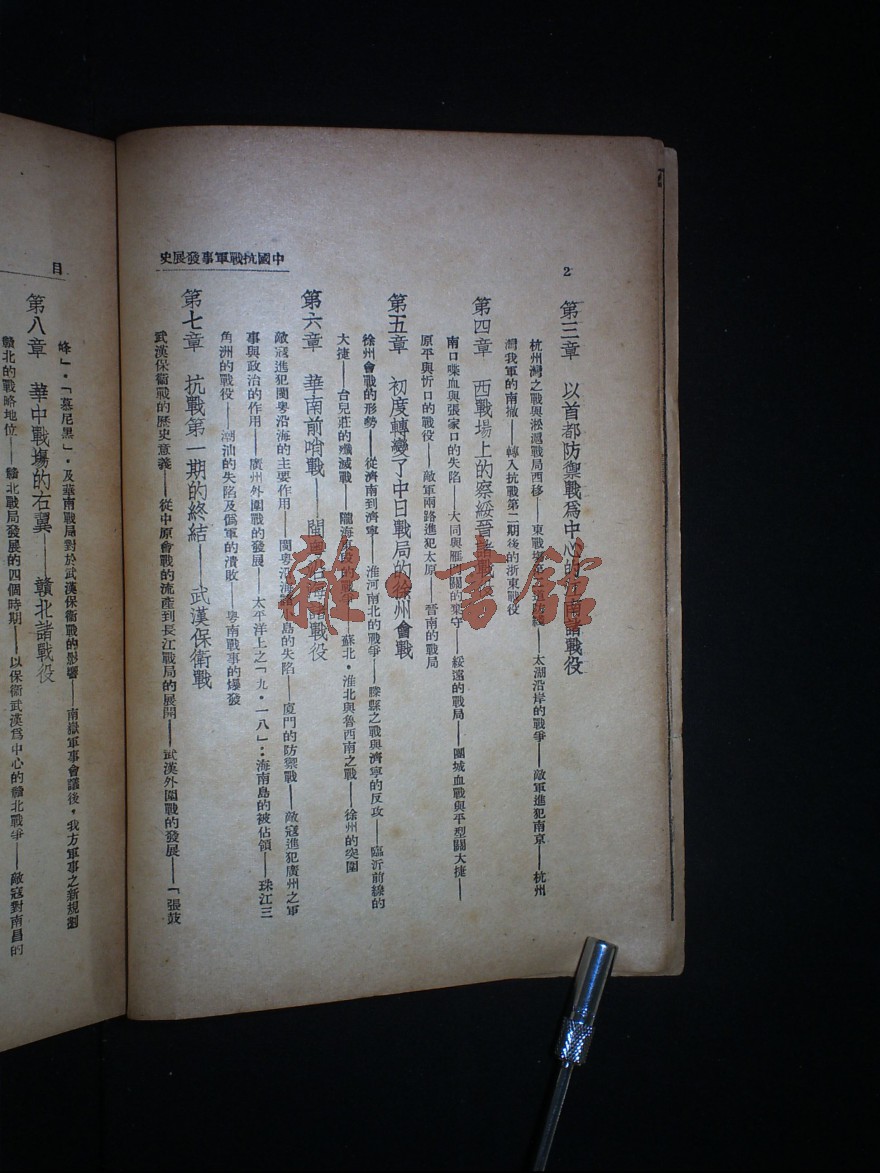 中國抗戰軍事發展史
2
第三章　以首都防禦戰爲中心的江南諸戰役
杭州灣之戰與淞滬戰局西移——東戰場　　　　　——太湖沿岸的戰爭——敵軍進犯南京——杭州
灣我軍的南撤——轉入抗戰第二期後的浙東戰役
第四章　西戰場上的察綏晉諸戰
南口喋血與張家口的失陷——大同與雁門關的棄守——綏遠的戰局——團城血戰與平型關大捷——
原平與忻口的戰役——敵軍兩路進犯太原——晉南的戰局
第五章　初度轉變了中日戰局的徐州會戰
徐州會戰的形勢——從濟南到濟寧——淮河南北的戰爭——滕縣之戰與濟寧的反攻——臨沂前線的
大捷——台兒莊的殲滅戰——隴海東段的戰——蘇北·淮北與魯西南之戰——徐州的突圍
第六章　華南前哨戰——閩粵沿海諸戰役
敵寇進犯閩粵沿海的主要作用——閩粵沿海諸小島的失陷——廈門的防禦戰——敵寇進犯廣州之軍
事與政治的作用——廣州外圍戰的發展——太平洋上之「九·一八」：海南島的被佔領——珠江三
角洲的戰役——潮汕的失陷及僞軍的潰敗——粵南戰事的爆發
第七章　抗戰第一期的終結——武漢保衛戰
武漢保衛戰的歷史意義——從中原會戰的流產到長江戰局的展開——武漢外圍戰的發展——「張鼓
目
峰」·「慕尼黑」·及華南戰局對於武漢保衛戰的影響——南嶽軍事會議後，我方軍事之新規劃
第八章　華中戰場的右翼——贛北諸戰役
贛北的戰略地位——贛北戰局發展的四個時期——以保衛武漢爲中心的贛北戰爭——敵寇對南昌的
雜·書館